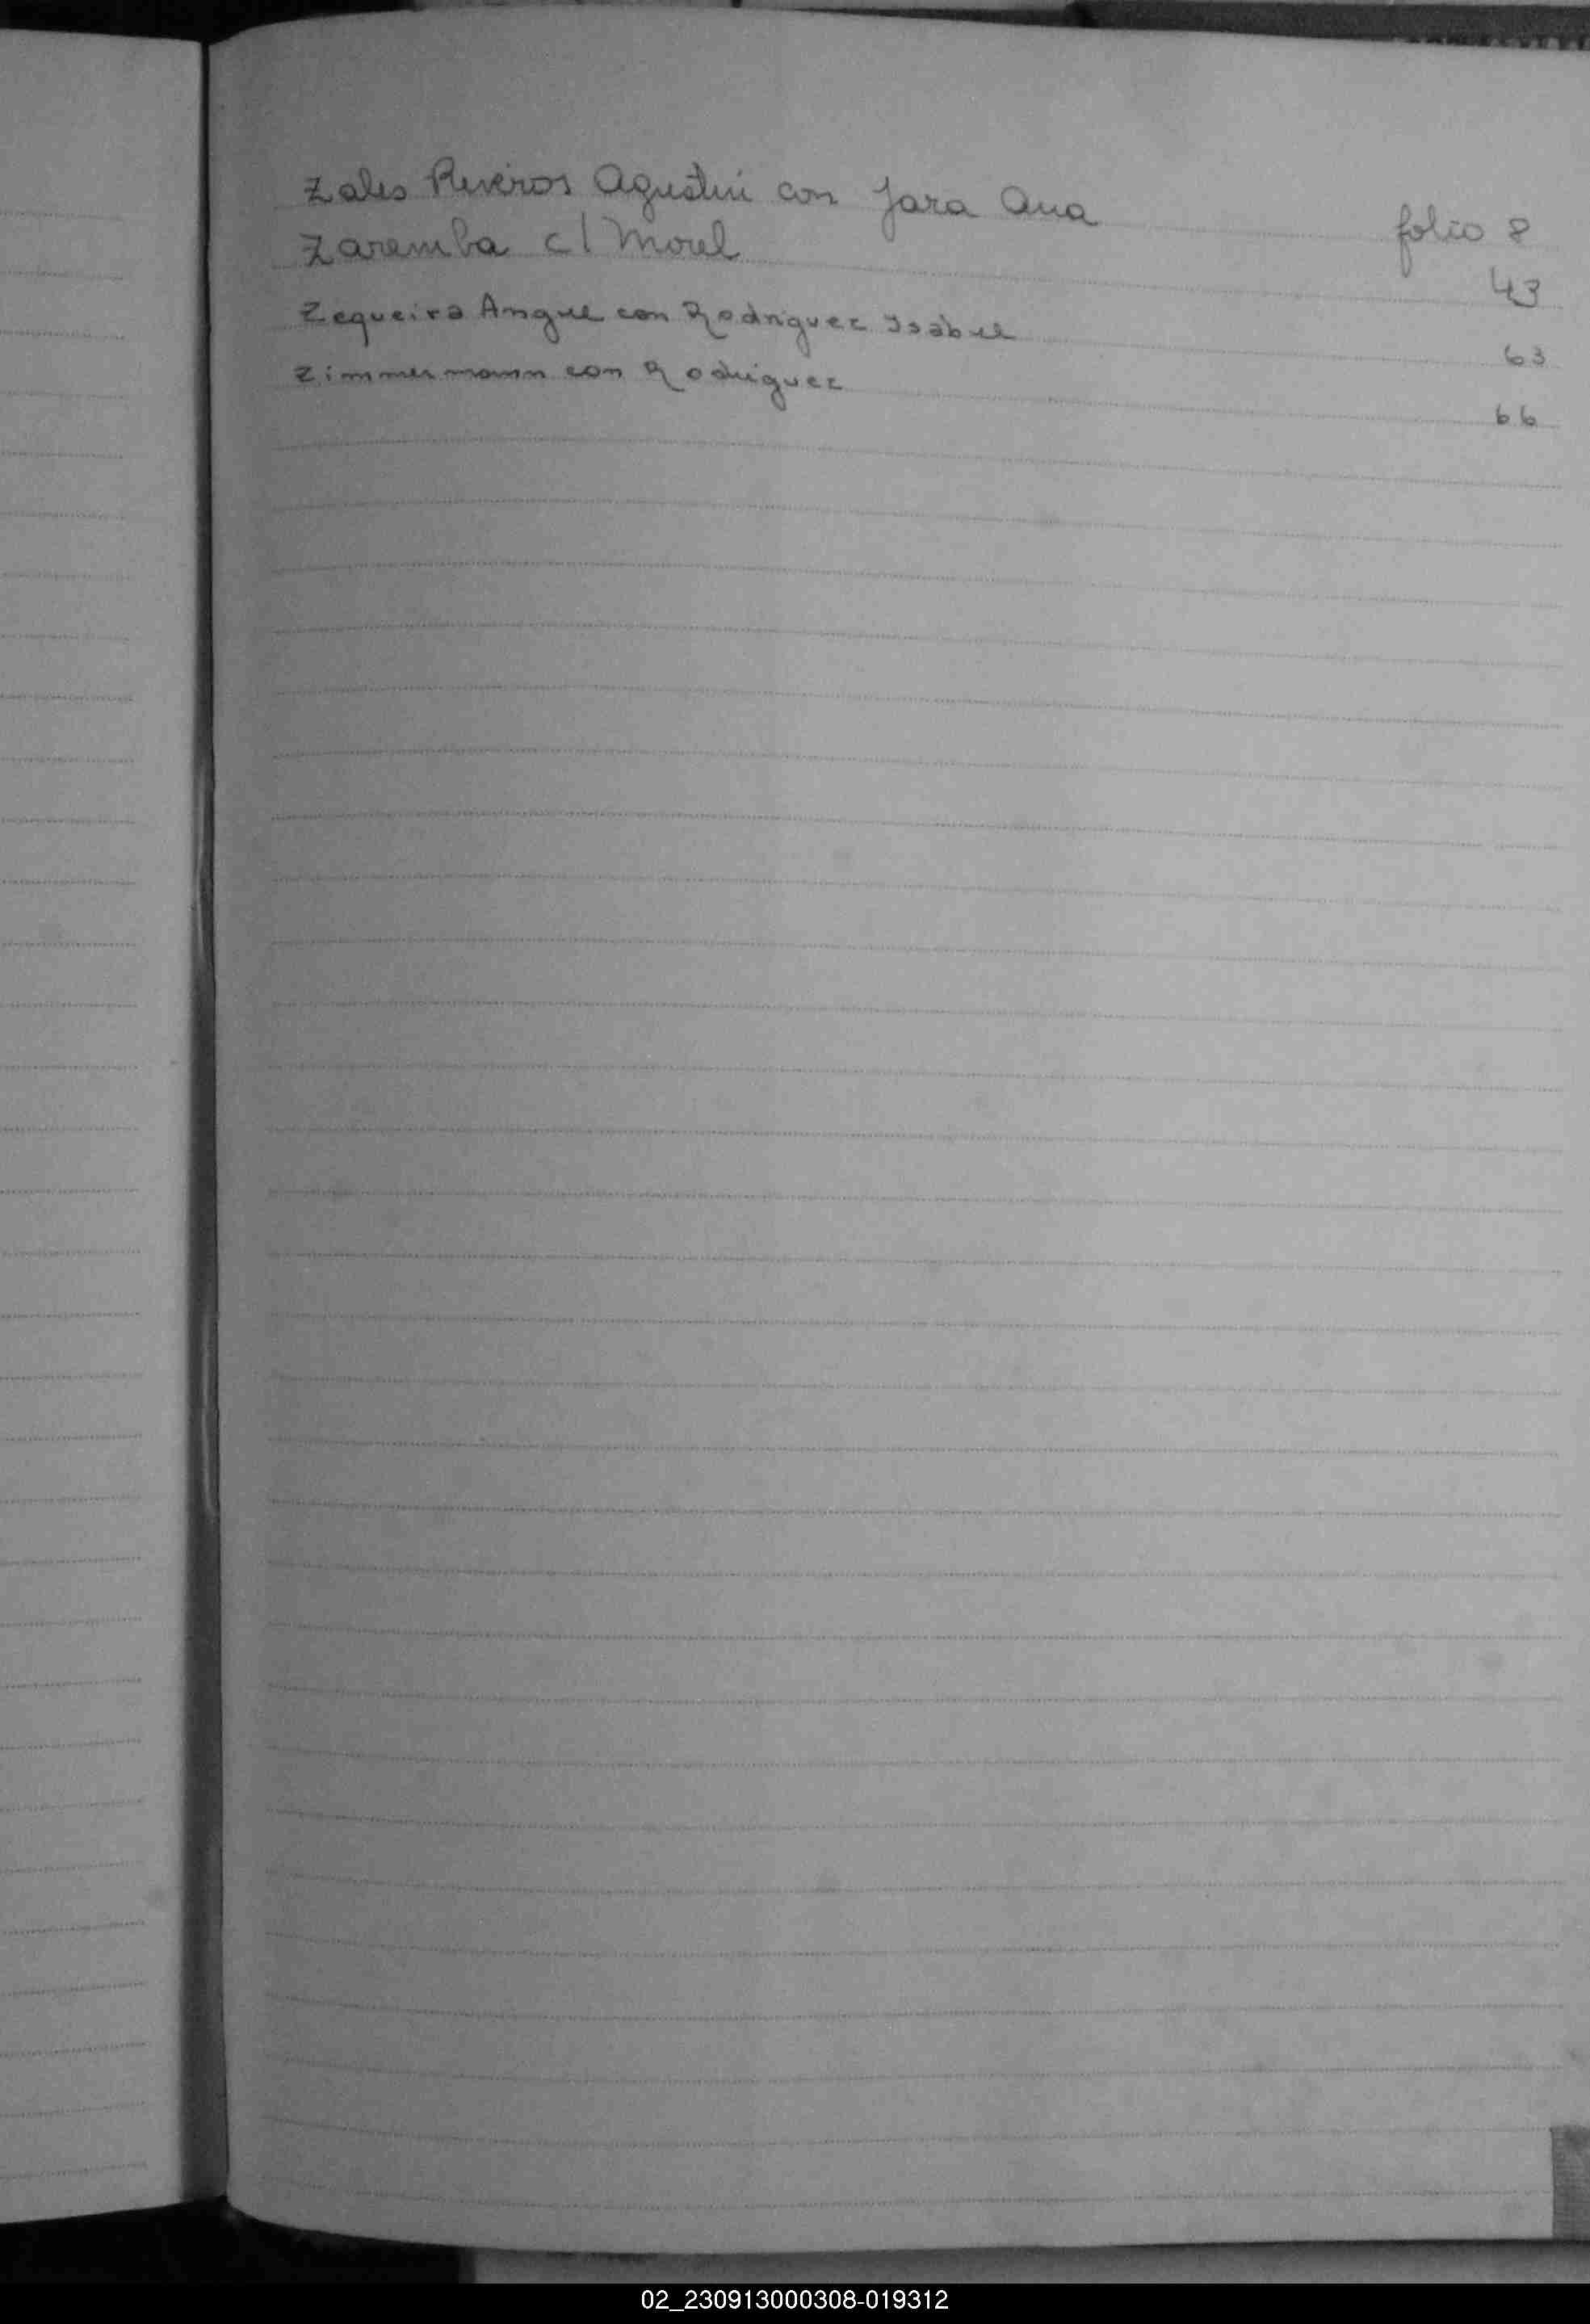 Zales Riveros Agustin con Jara Ana folio 8
Zaremba c/ Morel 43
Zequeira Angel con Rodriguez Isabel 63
Zimmermann con Rodriguez 66
02_230913000308-019312